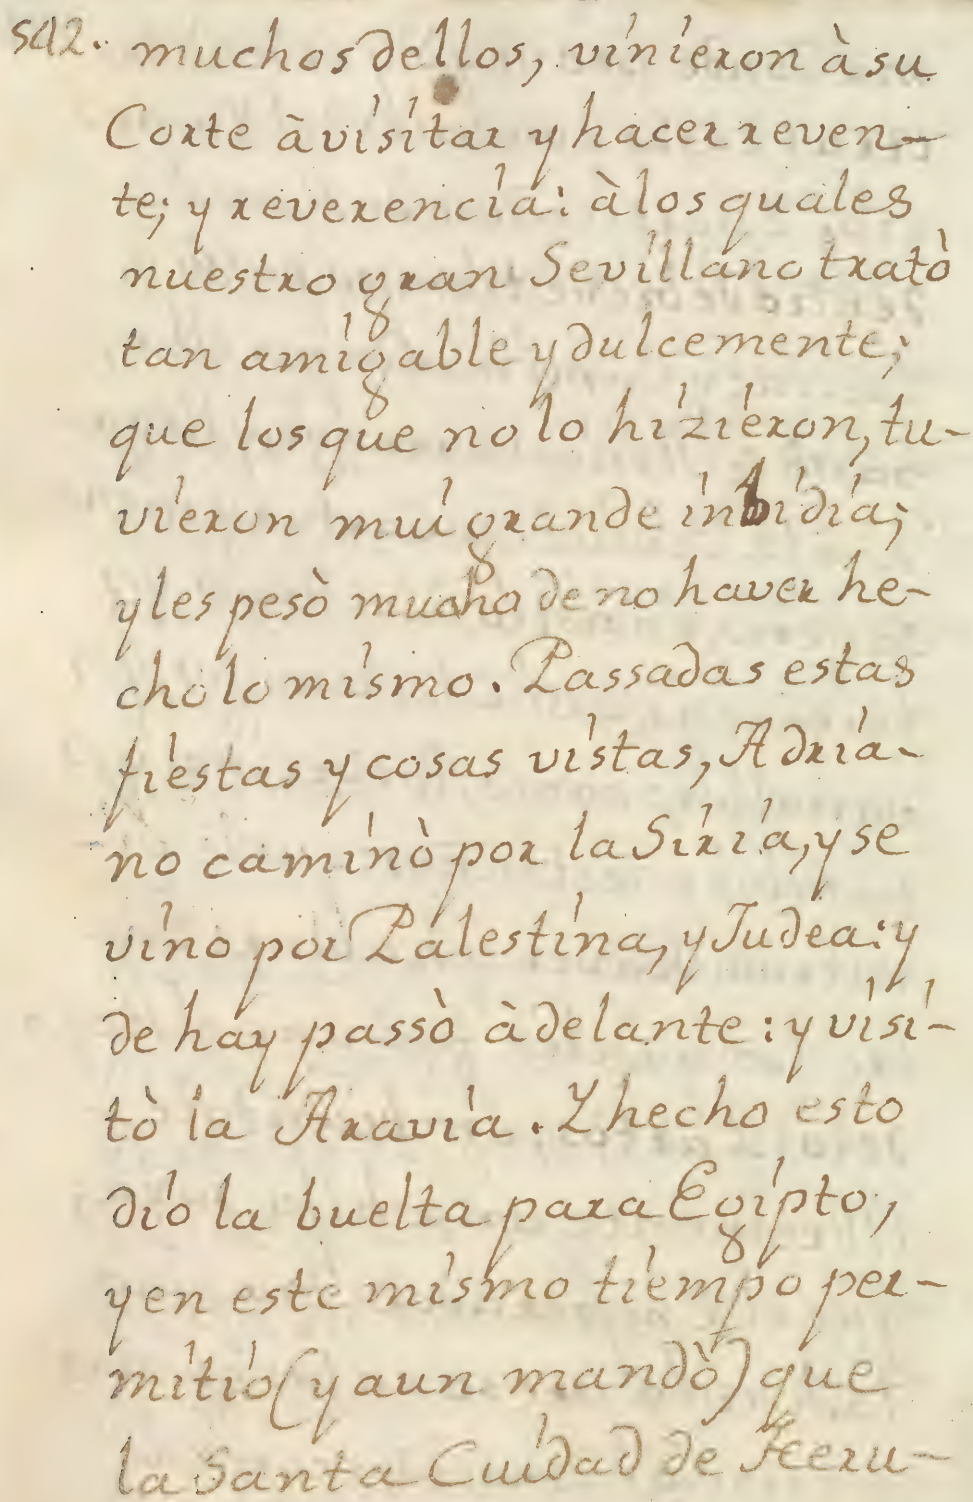 542. muchos dellos, vinieron à su
Corte à visitar y hacer reven-
te; y reverencia: à los quales
nuestro gran Sevillano tratò
tan amigable y dulcemente;
que los que no lo hizieron, tu-
vieron mui grande inbidia;
y les pesò mucho de no haver he-
cho lo mismo. Passadas estas
fiestas y cosas vistas, Adria-
no caminò por la Siria, y se
vino por Palestina, y Judea: y
de hay passò àdelante: y visi-
tò la Aravia. Y hecho esto
dio la buelta para Egipto,
y en este mismo tiempo per-
mitio (y aun mandò) que
la Santa Cuidad de Hieru-